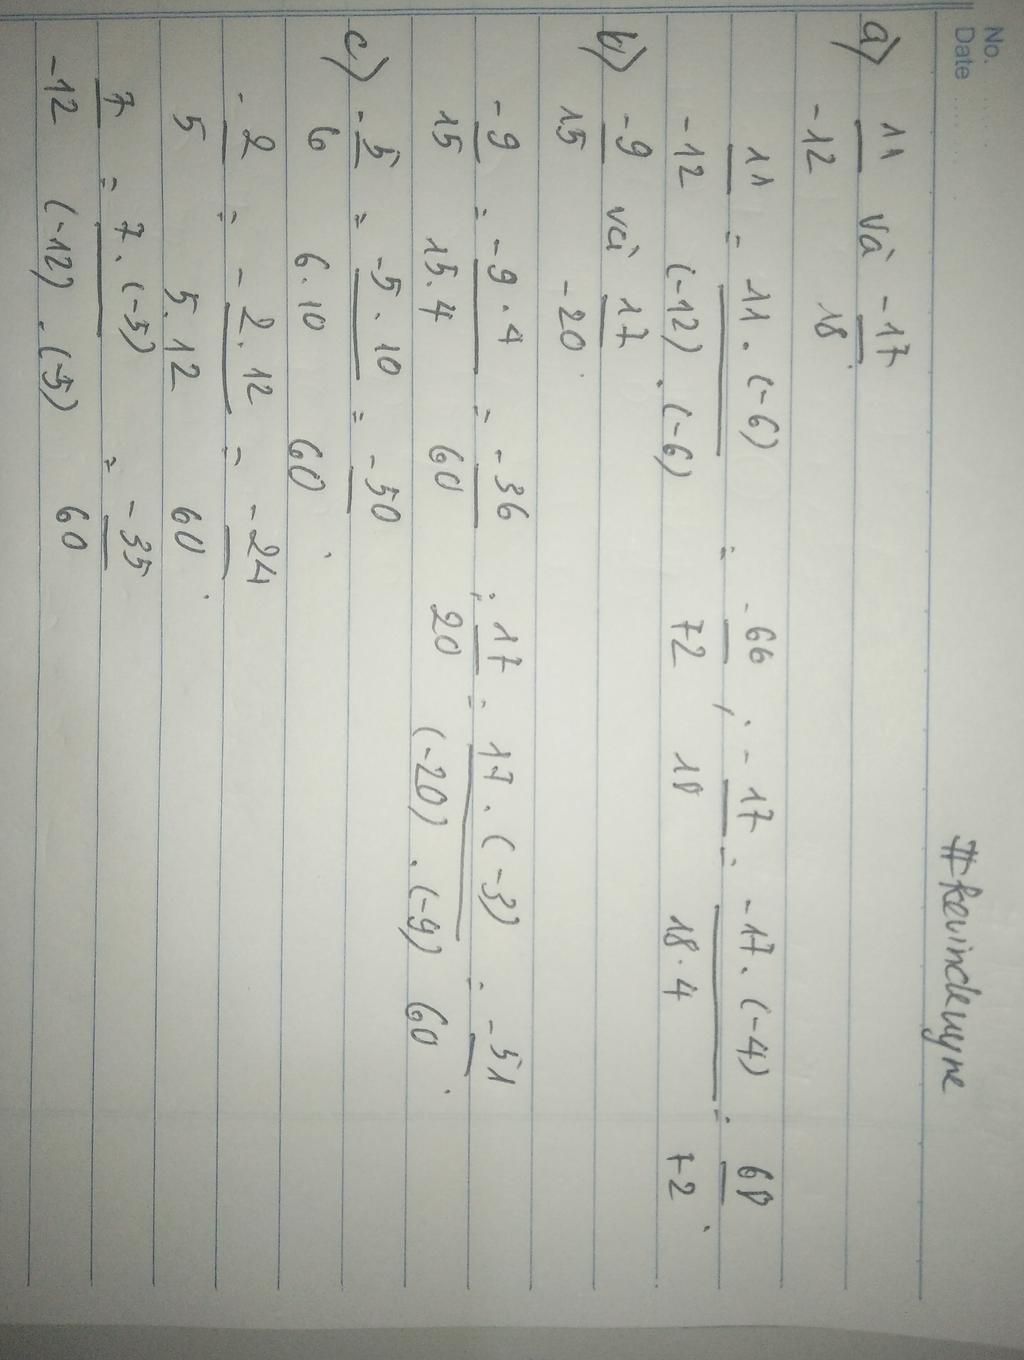 No.
Date
#kevindewyne
a) 11/-12 và -17/18
11/-12 = 11.(-6)/(-12).(-6) = -66/72 ; -17/18 = -17.(-4)/18.4 = 68/72
b) -9/15 và 17/-20
-9/15 = -9.4/15.4 = -36/60 ; 17/20 = 17.(-3)/(-20).(-9) = -51/60
c) -5/6 = -5.10/6.10 = -50/60
-2/5 = -2.12/5.12 = -24/60
7/-12 = 7.(-5)/(-12).(-5) = -35/60